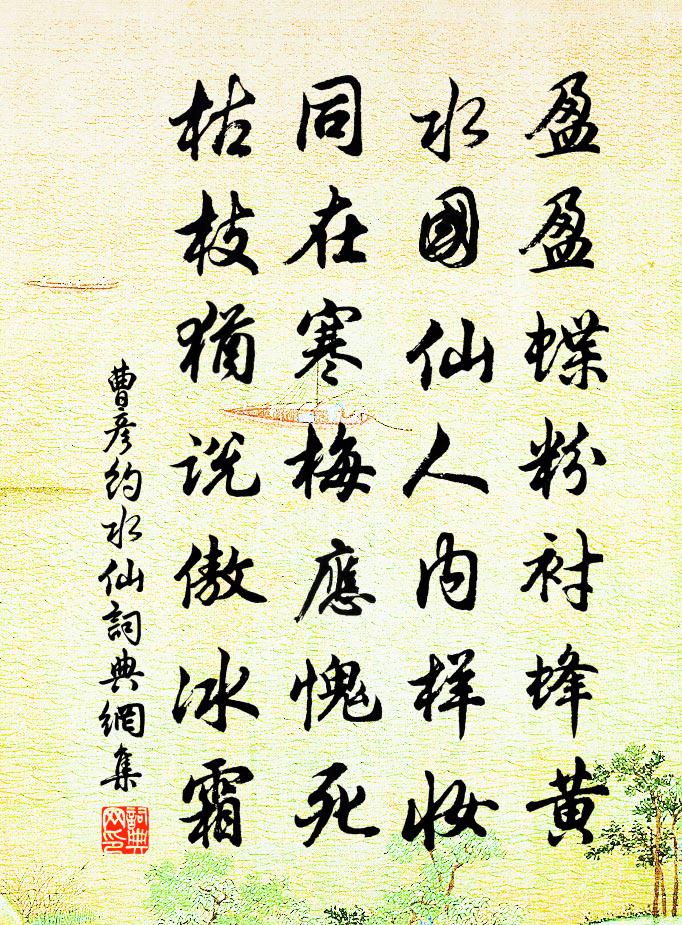 盈盈蝶粉衬蜂黄
水國仙人内样妆
同在寒梅應愧死
枯枝犹说傲冰霜
曹彦约水仙詞典網集
詞典网印